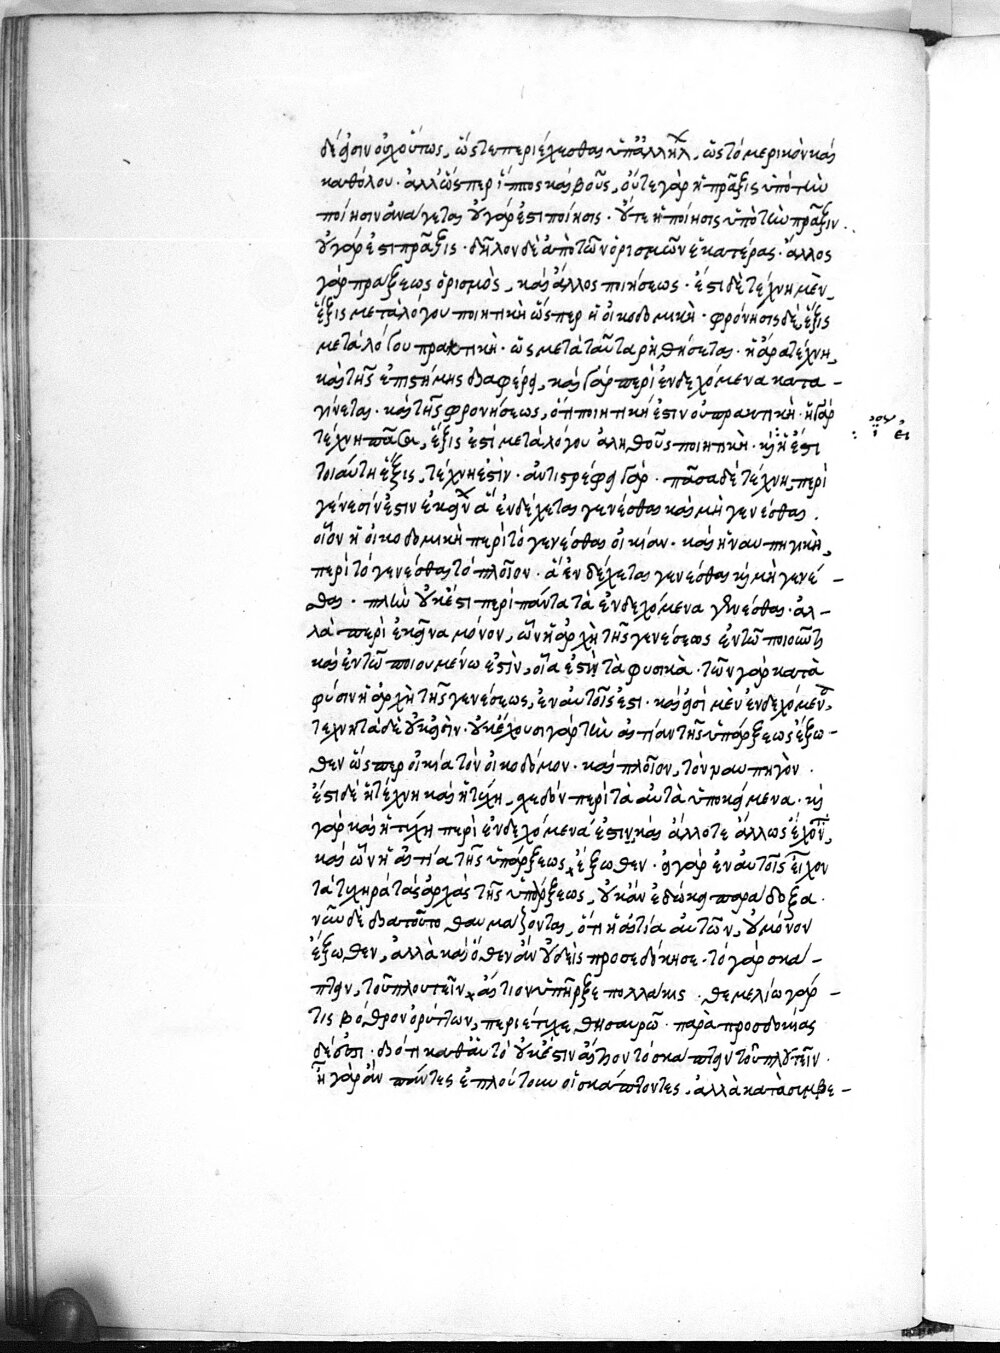 δέ εἰσιν οὐχ οὕτως, ὥστε περιέχεσθαι ὑπ' ἀλλήλων, ὡς τὸ μερικὸν καὶ
καθόλου· ἀλλ' ὥσπερ ἵππος καὶ βοῦς, οὔτε γὰρ ἡ πρᾶξις ὑπὸ τὴν
ποίησιν ἀνάγεται οὐ γάρ ἐστι ποίησις· οὔτε ἡ ποίησις ὑπὸ τὴν πρᾶξιν.
οὐ γάρ ἐστι πρᾶξις· δῆλον δὲ ἀπὸ τῶν ὁρισμῶν ἑκατέρας· ἄλλος
γὰρ πράξεως ὁρισμὸς, καὶ ἄλλος ποιήσεως· ἔστι δὲ τέχνη μὲν,
ἕξις μετὰ λόγου ποιητικὴ ὥσπερ ἡ οἰκοδομικὴ· φρόνησις δὲ, ἕξις
μετὰ λόγου πρακτικὴ· ὡς μετὰ ταῦτα ῥηθήσεται· ἡ ἄρα τέχνη,
καὶ τῆς ἐπιστήμης διαφέρει, καὶ γὰρ περὶ ἐνδεχόμενα κατα-
γίνεται· καὶ τῆς φρονήσεως, ὅτι ποιητική ἐστιν οὐ πρακτικὴ· ἡ γὰρ
τέχνη πᾶσα, ἕξις ἐστὶ μετὰ λόγου ἀληθοῦς ποιητικὴ· καὶ ἥ ἐστι
τοιαύτη ἕξις, τέχνη ἐστίν· ἀντιστρέφει γάρ· πᾶσα δὲ τέχνη, περὶ
γένεσίν ἐστιν ἐκείνων ἃ ἐνδέχεται γενέσθαι καὶ μὴ γενέσθαι.
οἷον ἡ οἰκοδομικὴ περὶ τὸ γενέσθαι οἰκίαν· καὶ ἡ ναυπηγικὴ,
περὶ τὸ γενέσθαι τὸ πλοῖον· ἃ ἐνδέχεται γενέσθαι καὶ μὴ γενέ-
σθαι· πλὴν οὐκ ἔστι περὶ πάντα τὰ ἐνδεχόμενα γενέσθαι· ἀλ-
λὰ περὶ ἐκεῖνα μόνον, ὧν ἡ ἀρχὴ τῆς γενέσεως ἐν τῷ ποιοῦντι
καὶ ἐν τῷ ποιουμένῳ ἐστὶν, οἷά ἐστι τὰ φυσικὰ· τῶν γὰρ κατὰ
φύσιν ἡ ἀρχὴ τῆς γενέσεως, ἐν αὐτοῖς ἐστι· καὶ εἰσὶ μὲν ἐνδεχόμενα,
τεχνητὰ δὲ οὐκ εἰσὶν· οὐκ ἔχουσι γὰρ τὴν αἰτίαν τῆς ὑπάρξεως ἔξω-
θεν ὥσπερ οἰκία τὸν οἰκοδόμον· καὶ πλοῖον, τὸν ναυπηγὸν.
ἔστι δὲ ἡ τέχνη καὶ ἡ τύχη, σχεδὸν περὶ τὰ αὐτὰ ὑποκείμενα· καὶ
γὰρ καὶ ἡ τύχη περὶ ἐνδεχόμενά ἐστιν, καὶ ἄλλοτε ἄλλως ἔχοντα,
καὶ ὧν ἡ αἰτία τῆς ὑπάρξεως, ἔξωθεν· εἰ γὰρ ἐν αὐτοῖς εἶχον
τὰ τυχηρὰ τὰς ἀρχὰς τῆς ὑπάρξεως, οὐκ ἂν ἐδόκει παράδοξα·
νῦν δὲ διὰ τοῦτο θαυμάζονται, ὅτι ἡ αἰτία αὐτῶν, οὐ μόνον
ἔξωθεν, ἀλλὰ καὶ ὅθεν ἂν οὐδεὶς προσεδόκησε· τὸ γὰρ σκά-
πτειν, τοῦ πλουτεῖν, αἴτιον ὑπῆρξε πολλάκις· θεμελίῳ γάρ
τις βόθρον ὀρύττων, περιέτυχε θησαυρῷ· παρὰ προσδοκίας
δέ ἐστι· διότι καθ' αὑτὸ οὐκ ἔστιν αἴτιον τὸ σκάπτειν τοῦ πλουτεῖν·
ἦ γὰρ ἂν πάντες ἐπλούτουν οἱ σκάπτοντες, ἀλλὰ κατὰ συμβε-